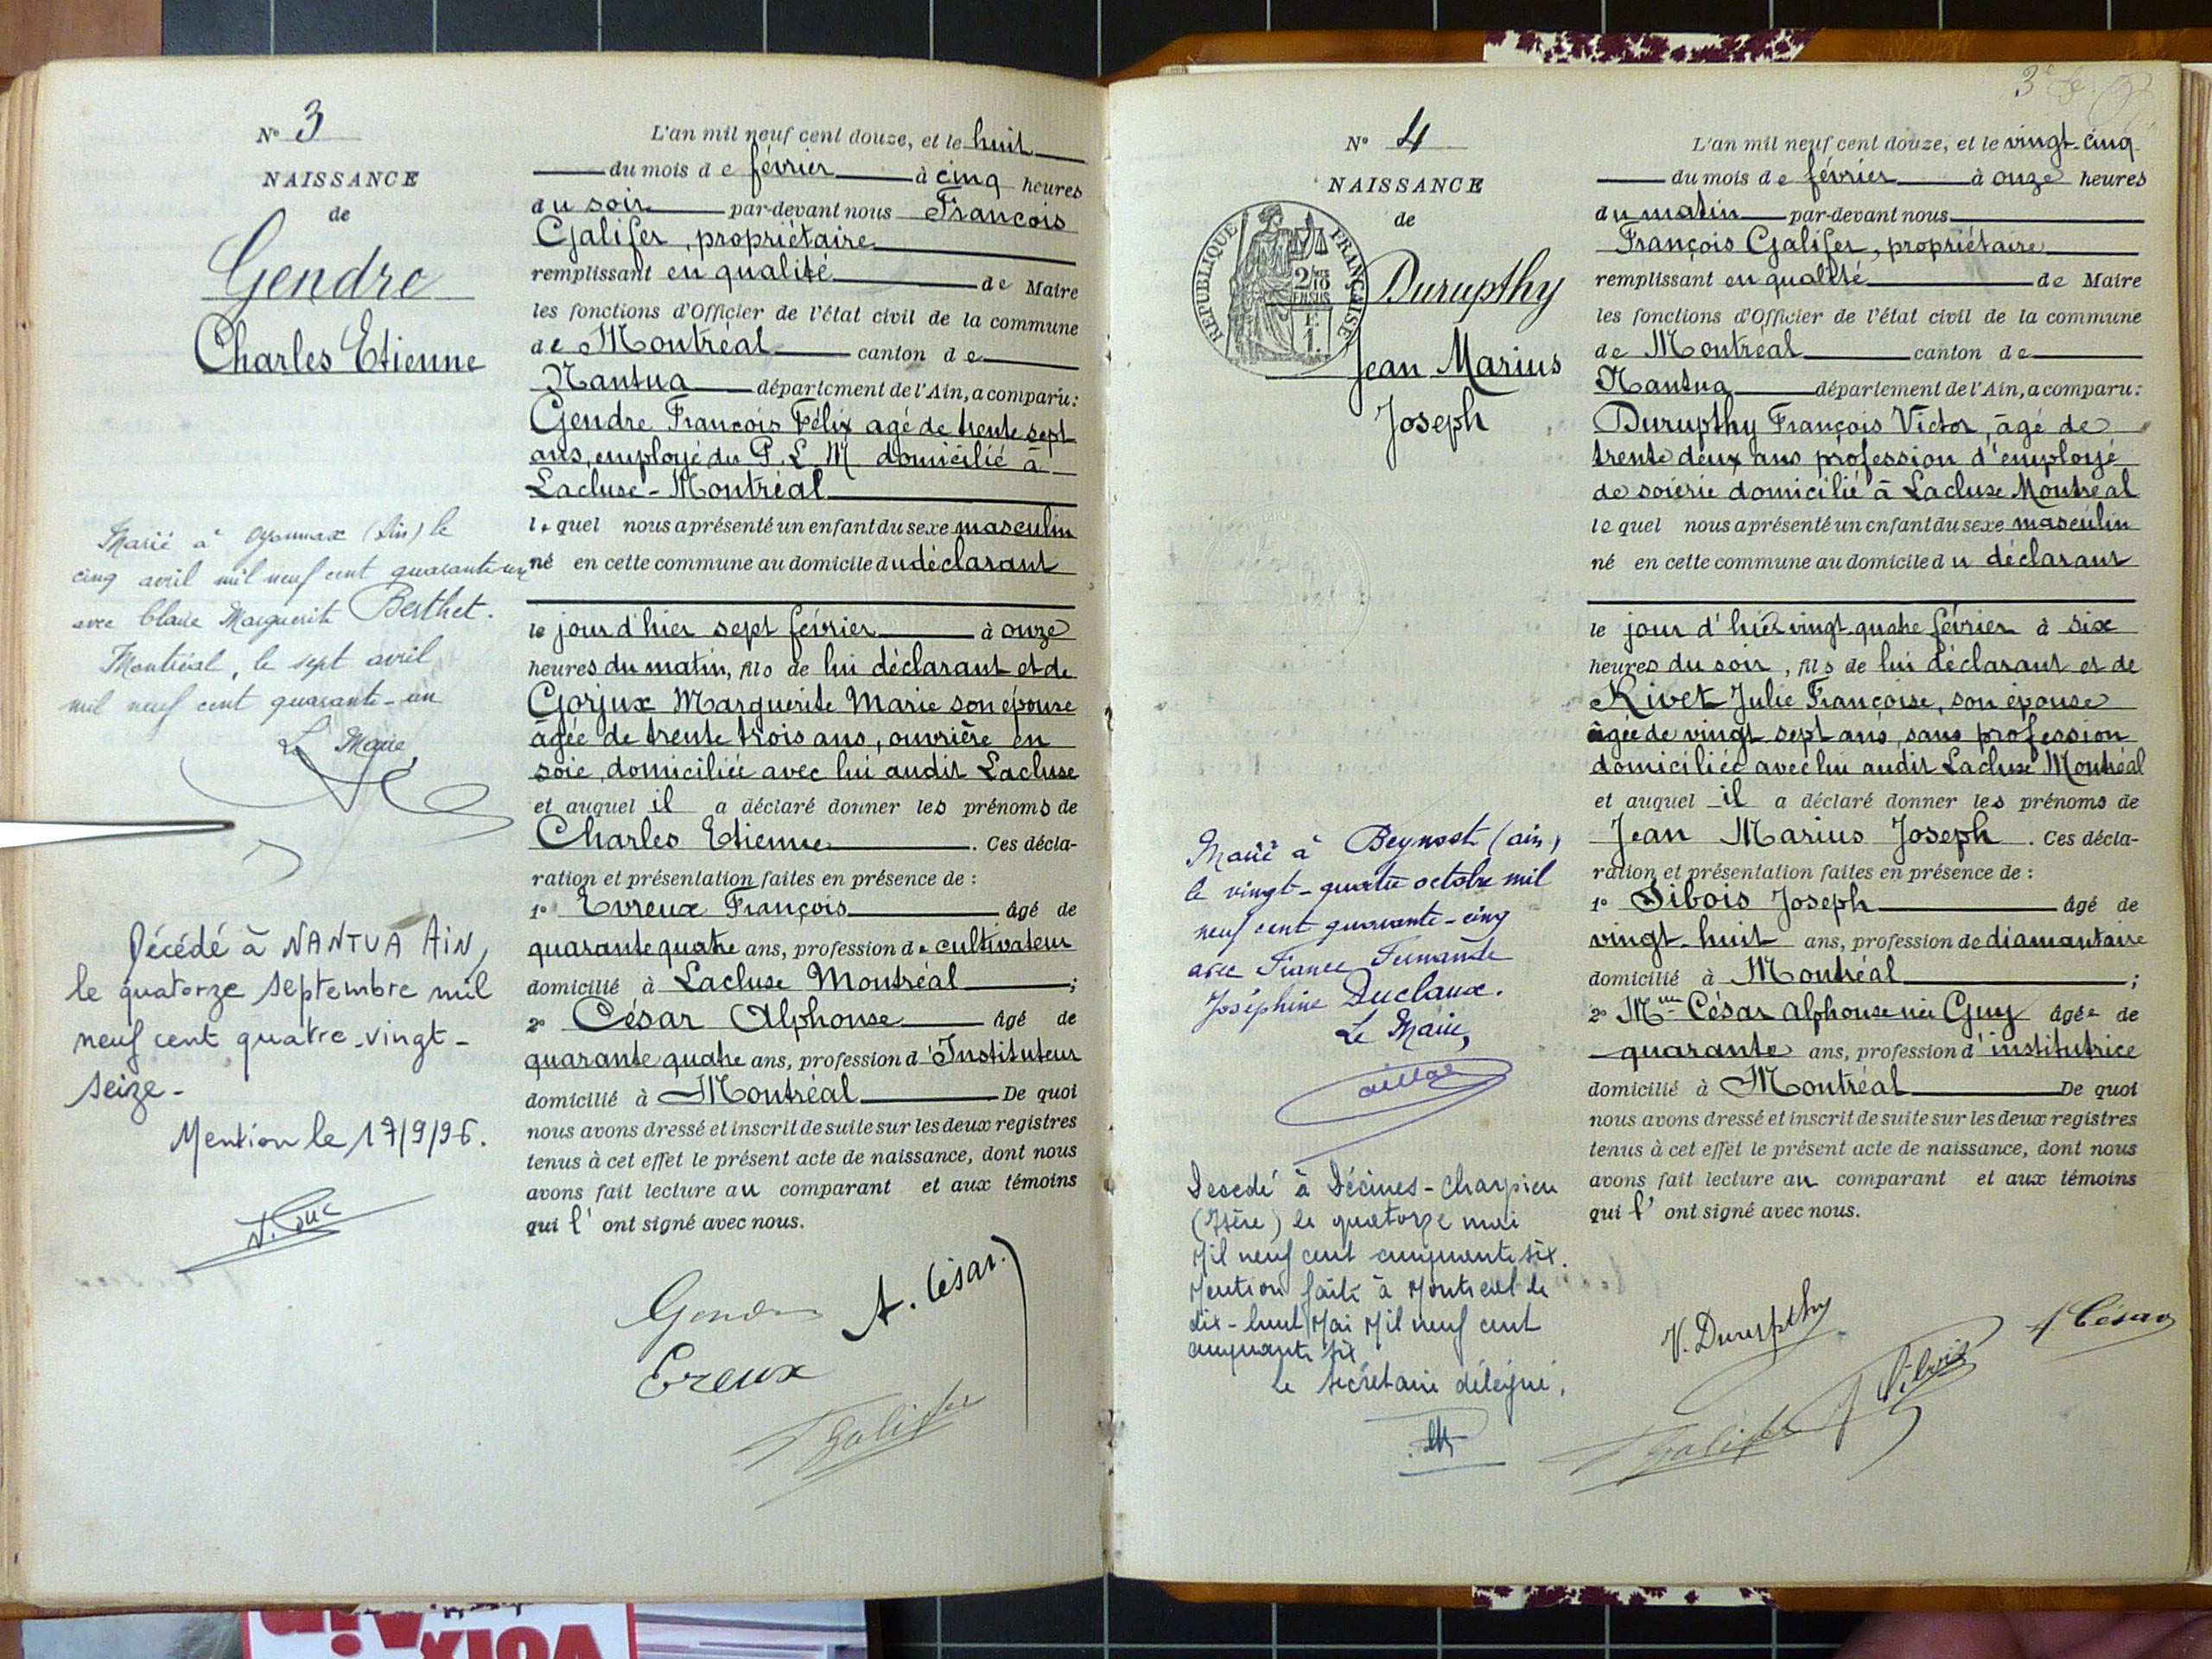 N° 3
NAISSANCE
de
Gendre
Charles Etienne
Marié à Oyonnax (Ain) le
cinq avril mil neuf cent quarante-un
avec Claire Marguerite Berthet.
Montréal, le sept avril
mil neuf cent quarante-un
Le Maire,
Décédé à NANTUA AIN,
le quatorze septembre mil
neuf cent quatre-vingt-
seize-
Mention le 17/9/96.
L'an mil neuf cent douze, et le huit
du mois de février à cinq heures
du soir par-devant nous François
Galifer, propriétaire
remplissant en qualité de Maire
les fonctions d'Officier de l'état civil de la commune
de Montréal canton de
Nantua département de l'Ain, a comparu:
Gendre François Félix agé de trente sept
ans, employé du P. L. M domicilié à
Lacluse-Montréal
lequel nous a présenté un enfant du sexe masculin
né en cette commune au domicile du déclarant
le jour d'hier sept février à onze
heures du matin, fils de lui déclarant et de
Gorjux Marguerite Marie son épouse
âgée de trente trois ans, ouvrière en
soie, domiciliée avec lui audit Lacluse
et auquel il a déclaré donner les prénoms de
Charles Etienne. Ces décla-
ration et présentation faites en présence de :
1° Evreux François âgé de
quarante quatre ans, profession de cultivateur
domicilié à Lacluse Montréal ;
2° César Alphonse âgé de
quarante quatre ans, profession d'Instituteur
domicilié à Montréal De quoi
nous avons dressé et inscrit de suite sur les deux registres
tenus à cet effet le présent acte de naissance, dont nous
avons fait lecture au comparant et aux témoins
qui l' ont signé avec nous.
Gendre
A. César.
Evreux
Galifer
N° 4
NAISSANCE
de
REPUBLIQUE FRANÇAISE
2/10
EN SUS
Durupthy
Jean Marius
Joseph
Marié à Beynost (ain)
le vingt-quatre octobre mil
neuf cent quarante-cinq
avec France Fernande
Joséphine Duclaux.
Le Maire,
Décédé à Décines-Charpieu
(Isère) le quatorze mai
Mil neuf cent cinquante six.
Mention faite à Montréal le
dix-huit Mai Mil neuf cent
cinquante six
Le secrétaire délégué,
L'an mil neuf cent douze, et le vingt-cinq
du mois de février à onze heures
du matin par-devant nous
François Galifer, propriétaire
remplissant en qualité de Maire
les fonctions d'Officier de l'état civil de la commune
de Montréal canton de
Nantua département de l'Ain, a comparu:
Durupthy François Victor, âgé de
trente deux ans profession d'employé
de soierie domicilié à Lacluse Montréal
lequel nous a présenté un enfant du sexe masculin
né en cette commune au domicile du déclarant
le jour d'hier vingt-quatre février à six
heures du soir, fils de lui déclarant et de
Rivet Julie Françoise, son épouse
âgée de vingt sept ans, sans profession
domiciliée avec lui audit Lacluse Montréal
et auquel il a déclaré donner les prénoms de
Jean Marius Joseph. Ces décla-
ration et présentation faites en présence de :
1° Sibois Joseph âgé de
vingt-huit ans, profession de diamantaire
domicilié à Montréal ;
2° Mme César Alphonse née Guy âgée de
quarante ans, profession d'institutrice
domicilié à Montréal De quoi
nous avons dressé et inscrit de suite sur les deux registres
tenus à cet effet le présent acte de naissance, dont nous
avons fait lecture au comparant et aux témoins
qui l' ont signé avec nous.
V. Durupthy
Sibois
César
Galifer
VOIX